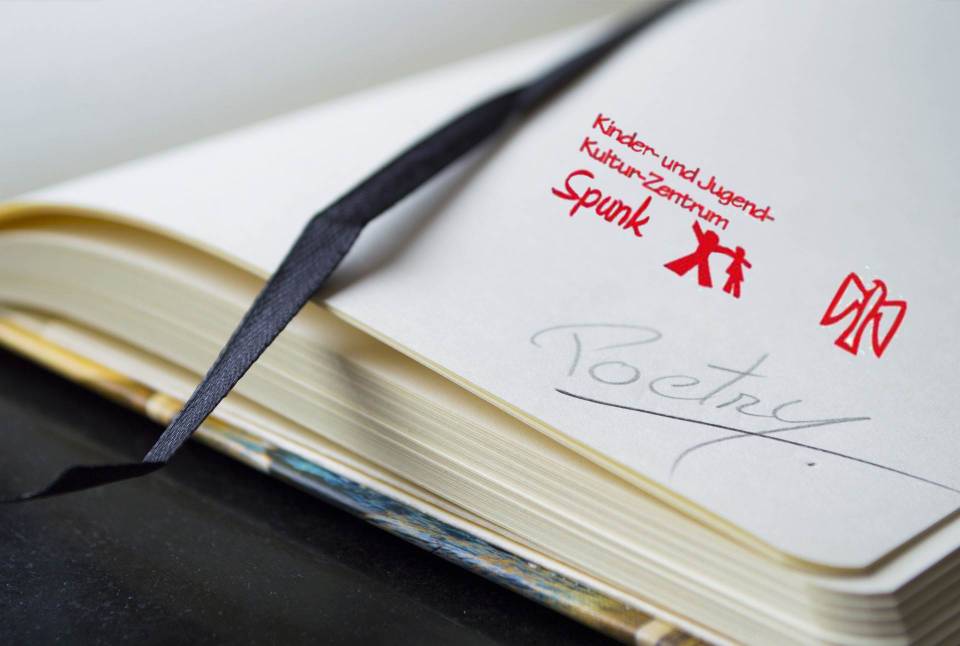 Kinder- und Jugend-
Kultur-Zentrum
Spunk
Poetry.